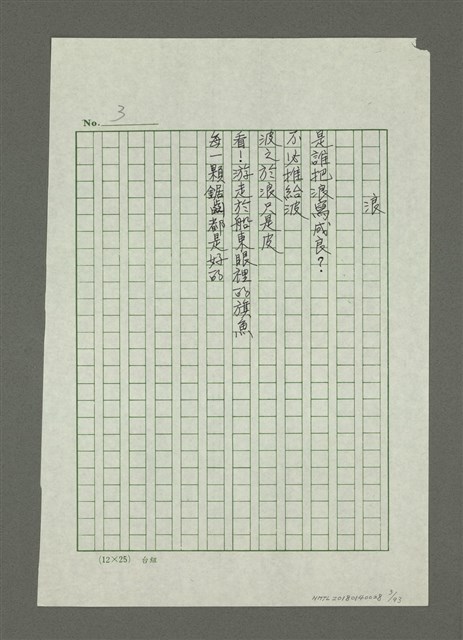 No. 3
浪
是誰把浪寫成良？
不必推給波
波之於浪只是皮
看！游走於船東眼裡的旗魚
每一顆鋸齒都是好的
(12×25) 台紙
NMTL20180140028 3/43